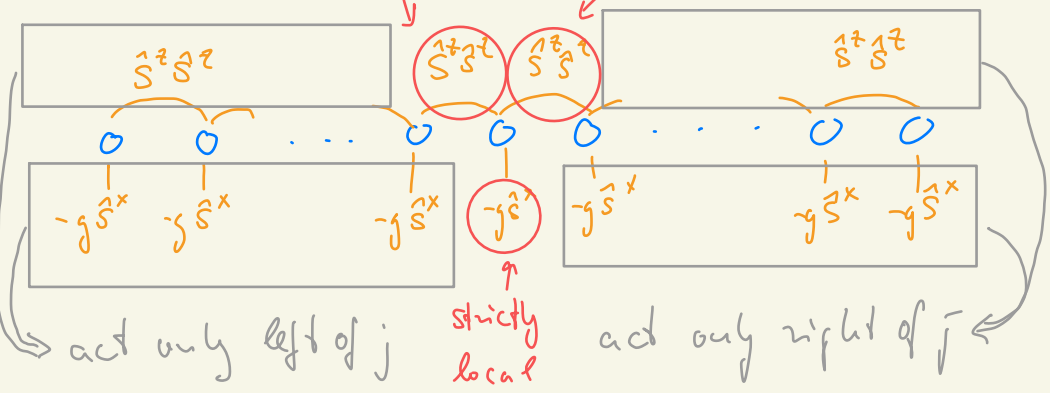 Ŝᶻ Ŝᶻ Ŝᶻ Ŝᶻ Ŝᶻ Ŝᶻ Ŝᶻ Ŝᶻ
. . . . . . .
-g Ŝˣ -g Ŝˣ -g Ŝˣ -g Ŝˣ -g Ŝˣ -g Ŝˣ -g Ŝˣ
act only left of j
strictly
local
act only right of j